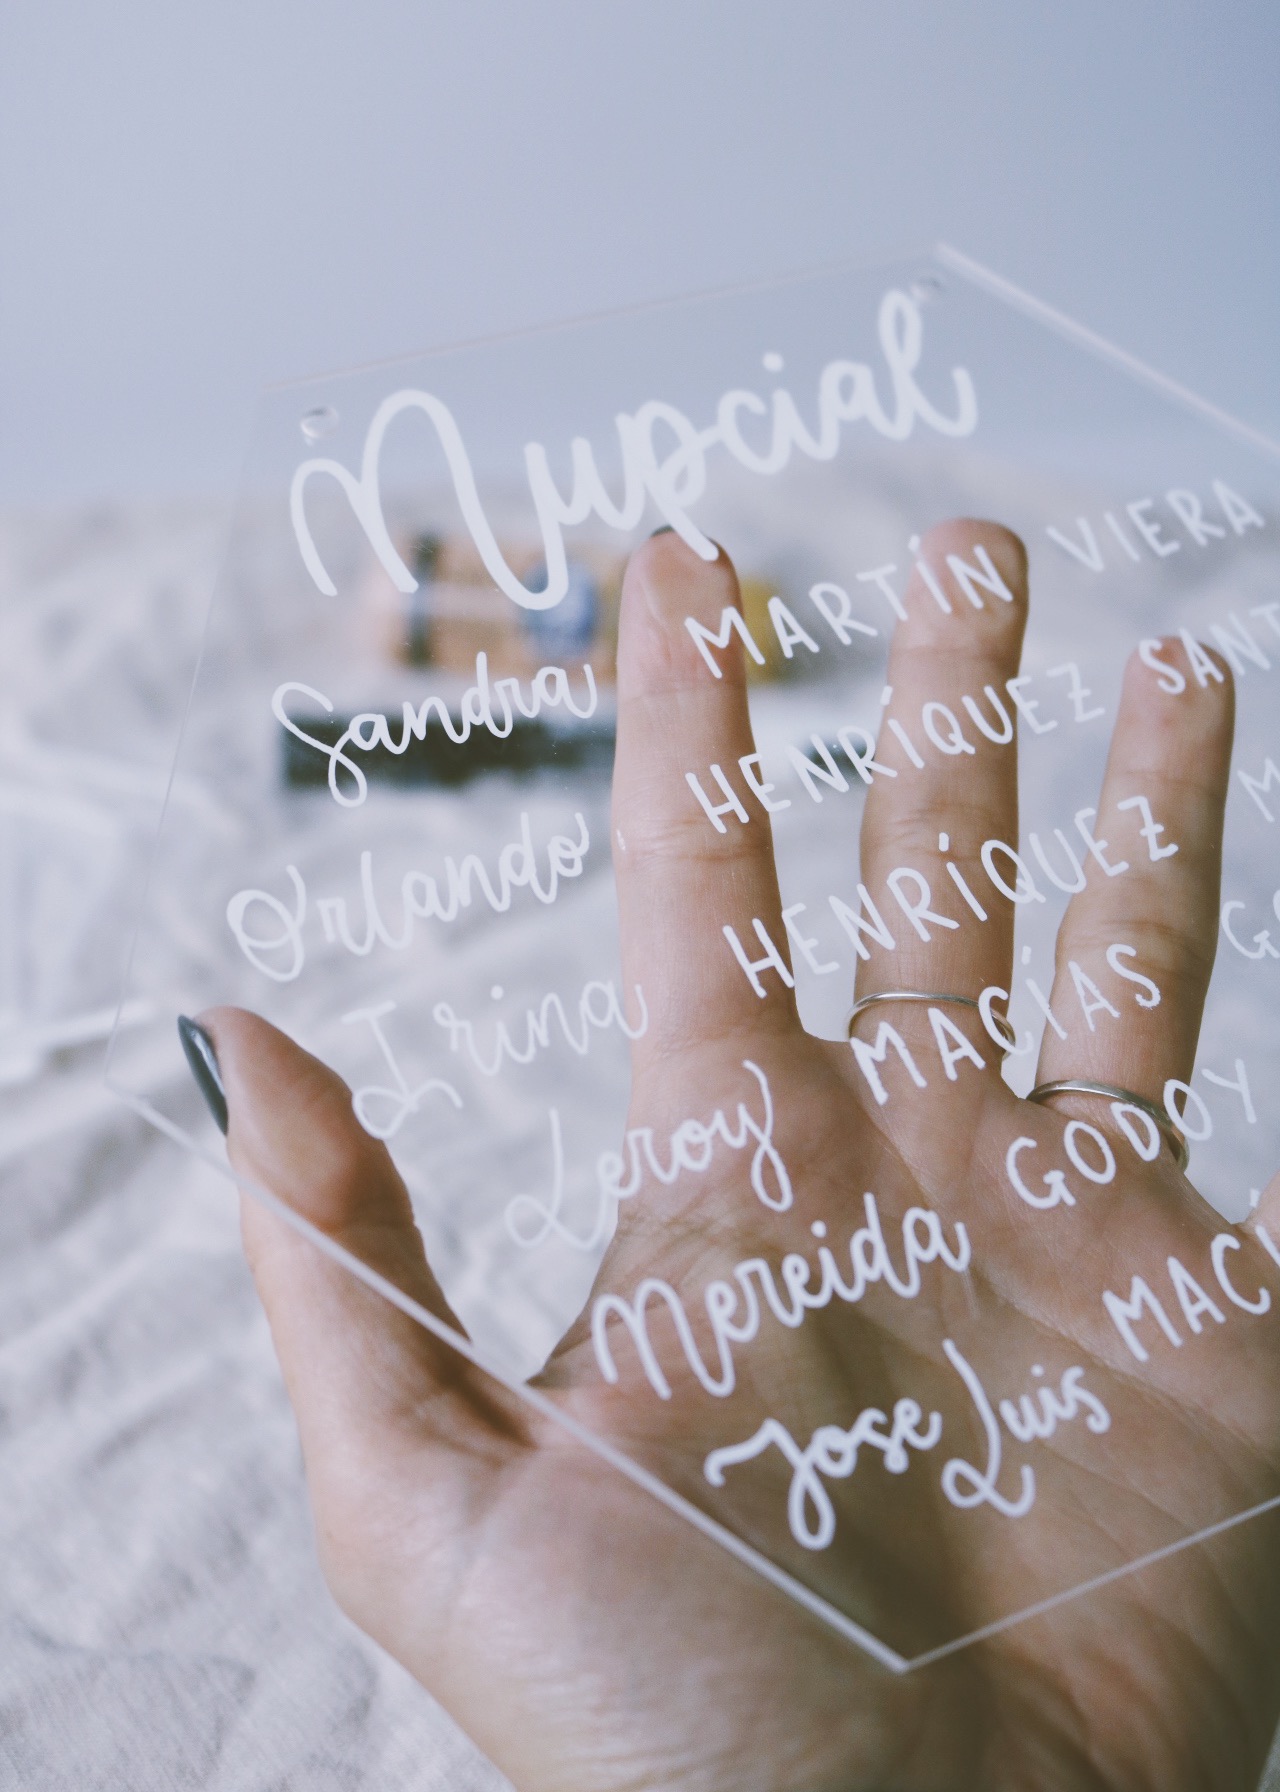 Nupcial
Sandra MARTÍN VIERA
Orlando HENRÍQUEZ
Irina HENRÍQUEZ
Leroy MACÍAS
Nereida GODOY
Jose Luis